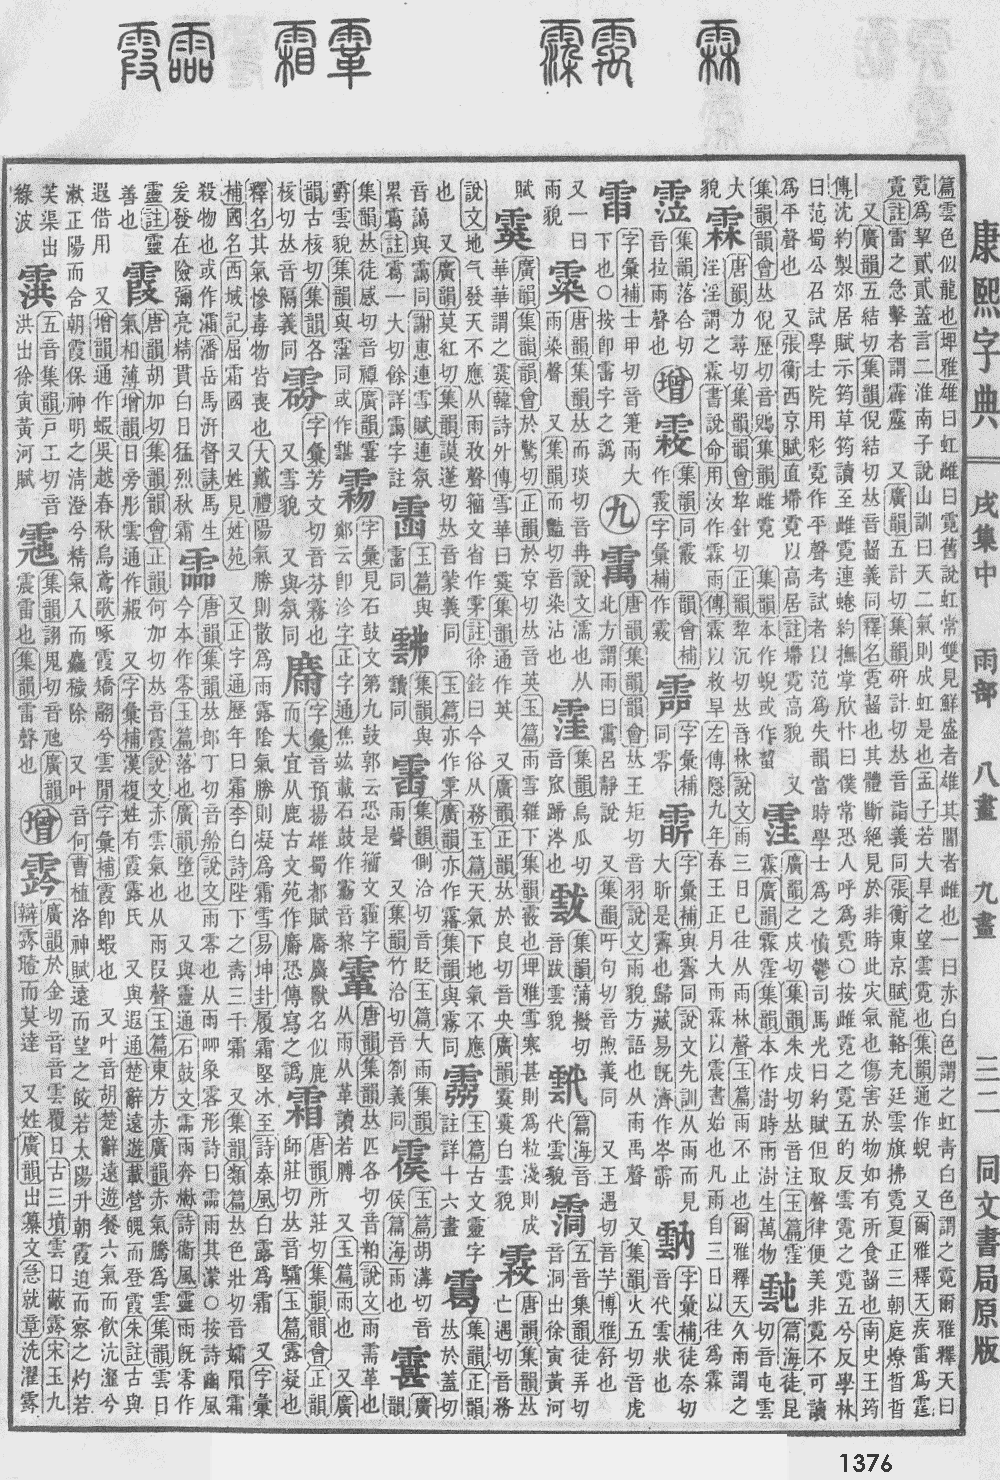 康熙字典 戌集中 雨部 八畫 九畫 三二 同文書局原版
篇雲色似龍也埤雅雄曰虹雌曰霓舊說虹常雙見鮮盛者雄其闇者雌也一曰赤白色謂之虹靑白色謂之霓爾雅釋天曰
霓爲挈貳貳蓋言二淮南子說山訓曰天二氣則成虹是也孟子若大旱之望雲霓也集韻通作蜺 又爾雅釋天疾雷爲霆
霓註雷之急擊者謂霹靂 又廣韻五計切集韻硏計切𠀤音詣義同張衡東京賦龍輅充廷雲旗拂霓夏正三朝庭燎晢晢
又廣韻五結切集韻倪結切𠀤音齧義同釋名霓齧也其體斷絕見於非時此灾氣也傷害於物如有所食齧也南史王筠
傳沈約製郊居賦示筠草筠讀至雌霓連蜷約撫掌欣忭曰僕常恐人呼爲霓○按雌霓之霓五的反雲霓之霓五兮反學林
曰范蜀公召試學士院用彩霓作平聲考試者以范爲失韻當時學士爲之憤鬱司馬光曰約賦但取聲律便美非霓不可讀
爲平聲也 又張衡西京賦直墆霓以高居註墆霓高貌 又
集韻韻會𠀤倪歷切音鶂集韻雌霓 集韻本作蜺或作
霔 廣韻之戍切集韻朱戍切𠀤音注玉篇霔
霖廣韻霖霔集韻本作澍時雨澍生萬物
霕 篇海徒昆
切音屯雲
大
貌
霖 唐韻力尋切集韻韻會犂針切正韻犂沉切𠀤音林說文雨三日已往从雨林聲玉篇雨不止也爾雅釋天久雨謂之
淫淫謂之霖書說命用汝作霖雨傳霖以救旱左傳隱九年春王正月大雨霖以震書始也凡雨自三日以往爲霖
集韻落合切
音拉雨聲也
增
霎 集韻同霰 韻會補
字彙補
同零
字彙補與霽同說文先訓从雨而見
大昕是霽也歸藏易旣濟作岑
字彙補徒奈切
音代雲狀也
字彙補士甲切音箑雨大
下也○按卽霅字之譌
九
唐韻集韻韻會𠀤王矩切音羽說文雨貌方語也从雨禹聲 又集韻火五切音虎
北方謂雨曰䨞呂靜說 又集韻吁句切音煦義同 又王遇切音芋博雅舒也
又一曰
雨貌
唐韻集韻𠀤而琰切音冉說文濡也从
雨染聲 又集韻而豔切音染沾也
集韻烏瓜切
音窊蹄涔也
集韻蒲撥切
音跋雲貌
篇海音
代雲貌
五音集韻徒弄切
音洞出徐寅黃河
賦
霙 廣韻集韻韻會於驚切正韻於京切𠀤音英玉篇雨雪雜下集韻霰也埤雅雪寒甚則爲粒淺則成
華華謂之霙韓詩外傳雪華曰霙集韻通作英 又廣韻正韻𠀤於良切音央廣韻霙霙白雲貌
唐韻集韻𠀤
亡遇切音務
說文地气發天不應从雨敄聲籒文省作雺註徐鉉曰今俗从務玉篇天氣下地氣不應
也 又廣韻莫紅切集韻謨蓬切𠀤音蒙義同 玉篇亦作雺廣韻亦作霧集韻與霧同
玉篇古文靈字
註詳十六畫
集韻正韻
𠀤於蓋切
謝惠連雪賦連氛
累靄註靄
一大切餘詳靄字註
玉篇與
霤同
集韻與
同
集韻側洽切音眨玉篇大雨集韻
雨聲 又集韻竹洽切音劄義同
玉篇胡溝切音
侯篇海雨也
廣
韻
集韻𠀤徒感切音禫廣韻霮䨴雲貌集韻與霮同或作
字彙見石鼓文第九鼓郭云恐是籒文霾字
鄭云卽沴字正字通焦竑載石鼓作
唐韻集韻𠀤匹各切音粕說文雨霑革也
从雨从革讀若膊 又玉篇雨也 又廣
韻古核切集韻各
核切𠀤音隔義同
字彙芳文切音芬霧也
又雪貌 又與氛同
字彙音預揚雄蜀都賦
而大宜从鹿古文苑作 恐傳寫之譌
霜 唐韻所莊切集韻韻會正韻
師莊切𠀤音驦玉篇露凝也
釋名其氣慘毒物皆喪也大戴禮陽氣勝則散爲雨露陰氣勝則凝爲霜雪易坤卦履霜堅冰至詩秦風白露爲霜 又字彙
補國名西域記屈霜國 又姓見姓苑 又正字通歷年曰霜李白詩陛下之壽三千霜 又集韻類篇𠀤色壯切音孀隕霜
殺物也或作灀潘岳馬汧督誄馬生
爰發在險彌亮精貫白日猛烈秋霜
唐韻集韻𠀤郎丁切音舲說文雨零也从雨𠱠象零形詩曰霝雨其濛○按詩豳風
今本作零玉篇落也廣韻墮也 又與靈通石鼓文霝雨奔楙詩衞風靈雨旣零作
靈註靈
善也
霞 唐韻胡加切集韻韻會正韻何加切𠀤音遐說文赤雲氣也从雨叚聲玉篇東方赤廣韻赤氣騰爲雲集韻雲日
氣相薄增韻日旁彤雲通作赮 又字彙補漢複姓有霞露氏 又與遐通楚辭遠遊載營魄而登霞朱註古與
遐借用 又增韻通作蝦吳越春秋烏鳶歌啄霞矯翮兮雲閒字彙補霞卽蝦也 又叶音胡楚辭遠遊餐六氣而飮沆瀣兮
漱正陽而含朝霞保神明之淸澄兮精氣入而麤穢除 又叶音何曹植洛神賦遠而望之皎若太陽升朝霞迫而察之灼若
芙渠出
綠波
五音集韻戸工切音
洪出徐寅黃河賦
集韻詡鬼切音虺廣韻
震雷也集韻雷聲也
增
廣韻於金切音音雲覆日古三墳雲日蔽露宋玉九
辯露曀而莫達 又姓廣韻出纂文急就章洗濯露
1376